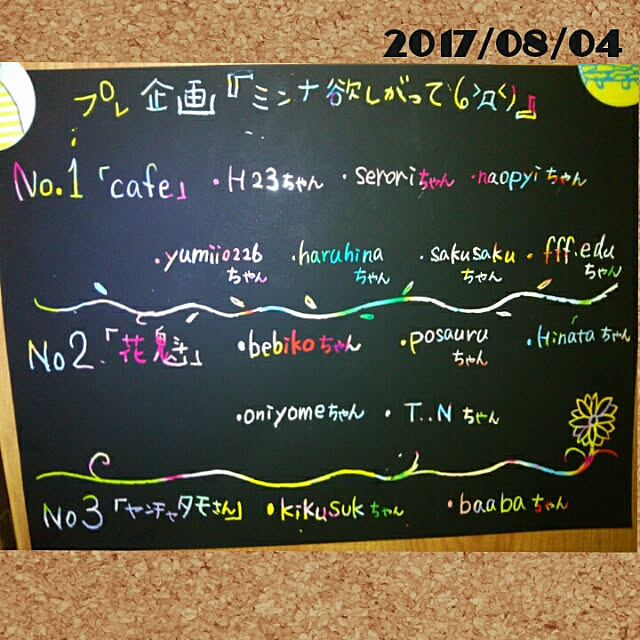 2017/08/04
プレ 企画『ミンナ欲しがって
No.1 「cafe」 ・H23ちゃん ・seroriちゃん ・naopyiちゃん
・yumii0226ちゃん ・haruhinaちゃん ・sakusakuちゃん ・fff.eduちゃん
No2.「花鬼」 ・bebikoちゃん ・posauruちゃん ・Hinataちゃん
・oniyomeちゃん ・T..Nちゃん
No3「ヤンチャタモさん」 ・kikusukちゃん ・baabaちゃん